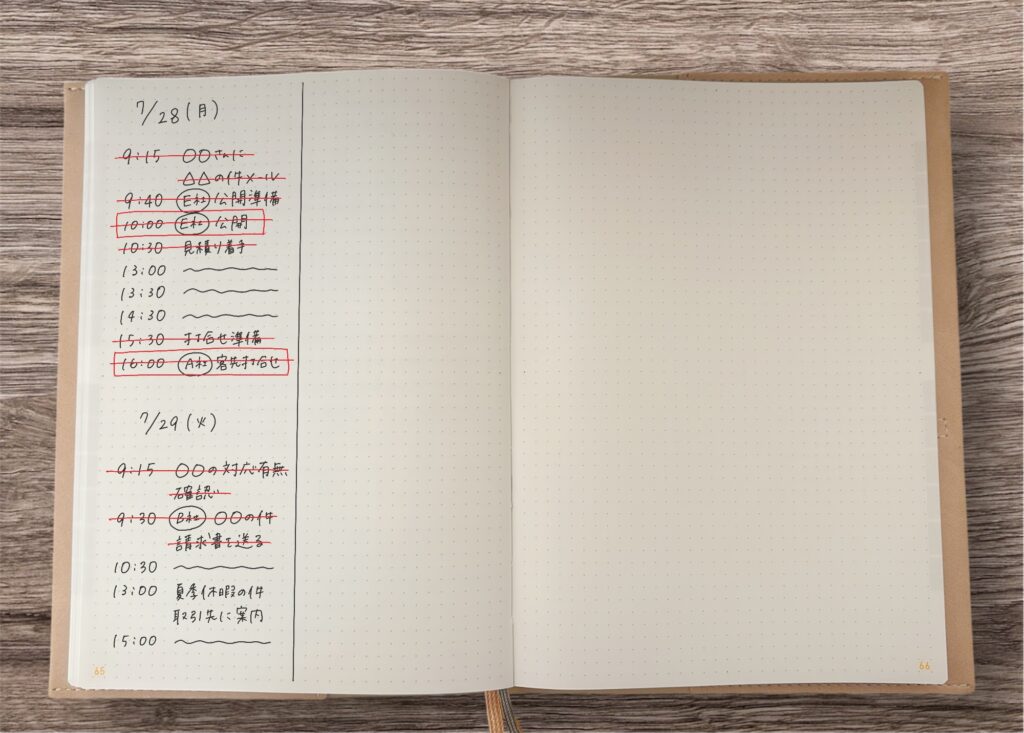 7/28(月)
9:15 〇〇さんに
△△の件メール
9:40 E社 公開準備
10:00 E社 公開
10:30 見積り着手
13:00
13:30
14:30
15:30 打合せ準備
16:00 A社 客先打合せ
7/29(火)
9:15 〇〇の対応有無
確認
9:30 B社 〇〇の件
請求書を送る
10:30
13:00 夏季休暇の件
取引先に案内
15:00
65
66